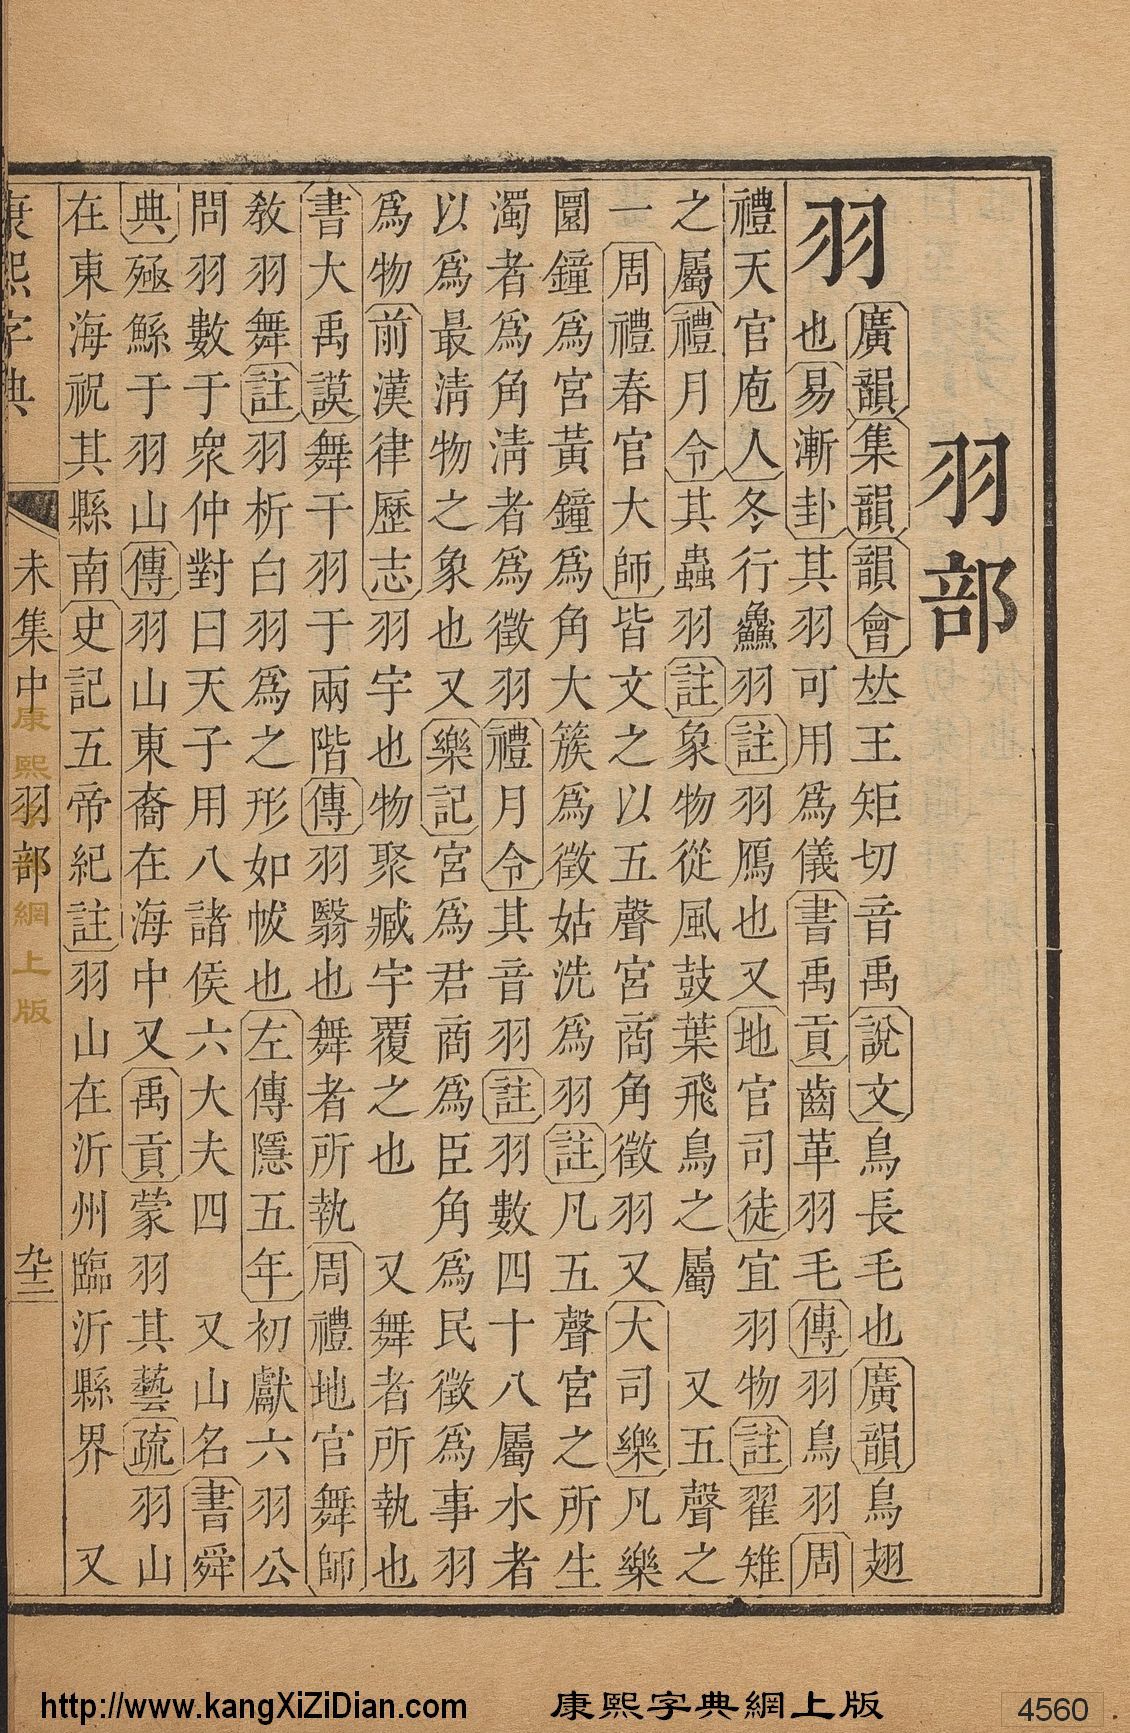 羽部
羽
廣韻集韻韻會𠀤王矩切音禹說文鳥長毛也廣韻鳥翅
也易漸卦其羽可用爲儀書禹貢齒革羽毛傳羽鳥羽周
禮天官庖人冬行鱻羽註羽鴈也又地官司徒宜羽物註翟雉
之屬禮月令其蟲羽註象物從風鼓葉飛鳥之屬　又五聲之
一周禮春官大師皆文之以五聲宮商角徵羽又大司樂凡樂
圜鐘爲宮黃鐘爲角大簇爲徵姑洗爲羽註凡五聲宮之所生
濁者爲角淸者爲徵羽禮月令其音羽註羽數四十八屬水者
以爲最淸物之象也又樂記宮爲君商爲臣角爲民徵爲事羽
爲物前漢律歷志羽宇也物聚臧宇覆之也　又舞者所執也
書大禹謨舞干羽于兩階傳羽翳也舞者所執周禮地官舞師
敎羽舞註羽析白羽爲之形如帗也左傳隱五年初獻六羽公
問羽數于衆仲對曰天子用八諸侯六大夫四　又山名書舜
典殛鯀于羽山傳羽山東裔在海中又禹貢蒙羽其藝疏羽山
在東海祝其縣南史記五帝紀註羽山在沂州臨沂縣界　又
康熙字典　未集中　羽部　九十二
康熙字典網上版
http://www.kangXiZiDian.com　康熙字典網上版　4560